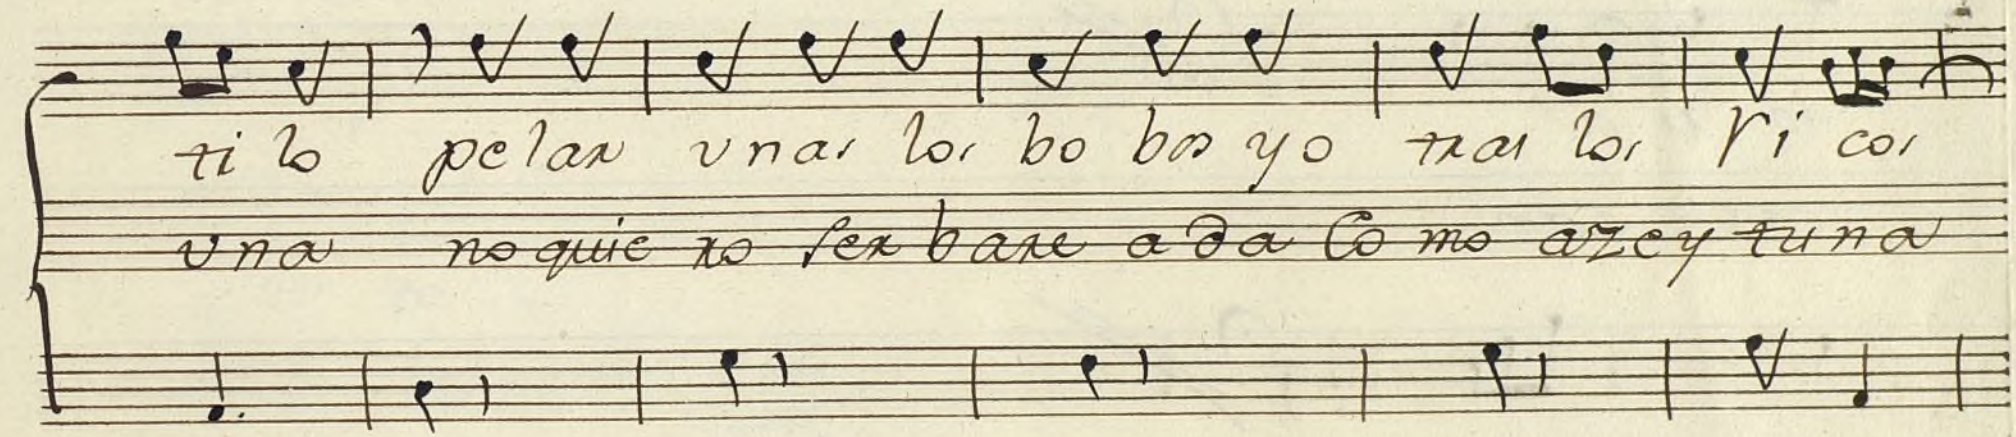 ti lo pelar unas los bo bos yo tras los ri cos
una no quie ro ser bare a da Co mo azey tuna